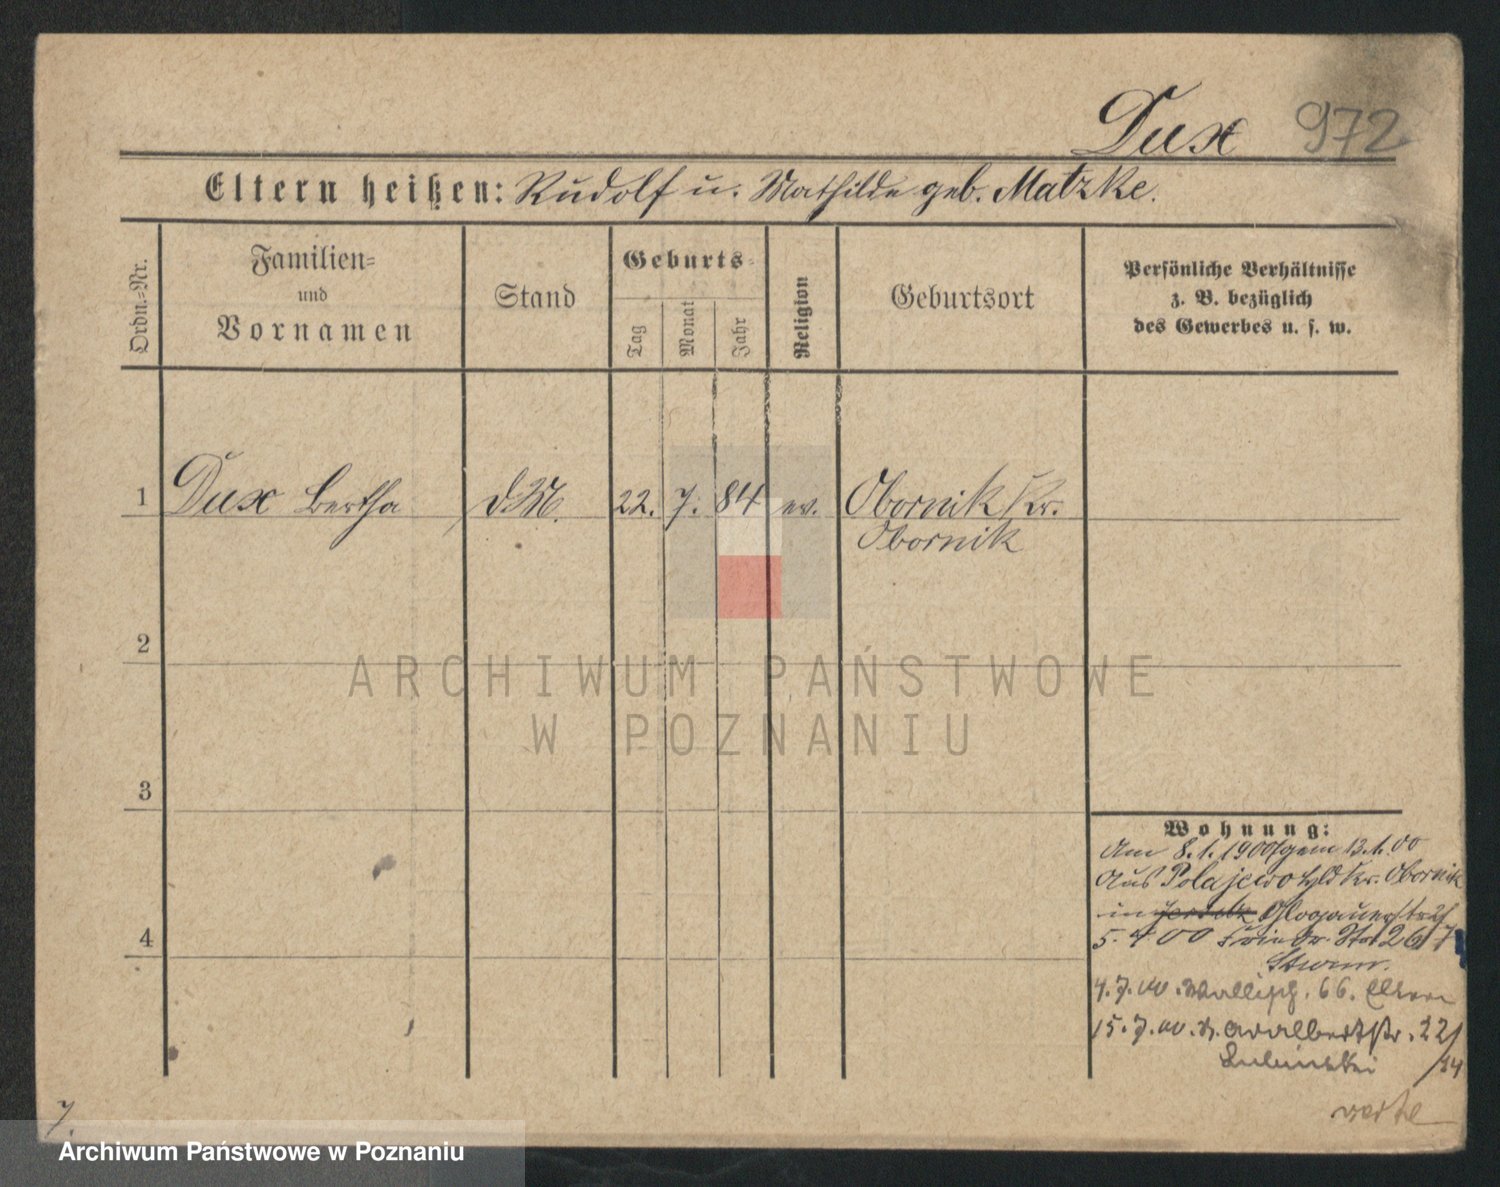 Dux 972
Eltern heißen: Rudolf u. Mathilde geb. Matzke.
Ordn.=Nr.
Familien=
und
Vornamen
Stand
Geburts=
Tag
Monat
Jahr
Religion
Geburtsort
Persönliche Verhältnisse
z. B. bezüglich
des Gewerbes u. s. w.
1 Dux Bertha d.M. 22. 7. 84 ev. Obornik Kr.
Obornik
2
3
4
Wohnung:
Am 8.1.1900 gem 13.1.00
aus Polajewo Kr. Obornik
in Glogauerstr
5. 4 00 26
4.7.00. Wallisch. 66. Eltern
15.7.00. 22/
/34
verte
7.
ARCHIWUM PAŃSTWOWE
W POZNANIU
Archiwum Państwowe w Poznaniu